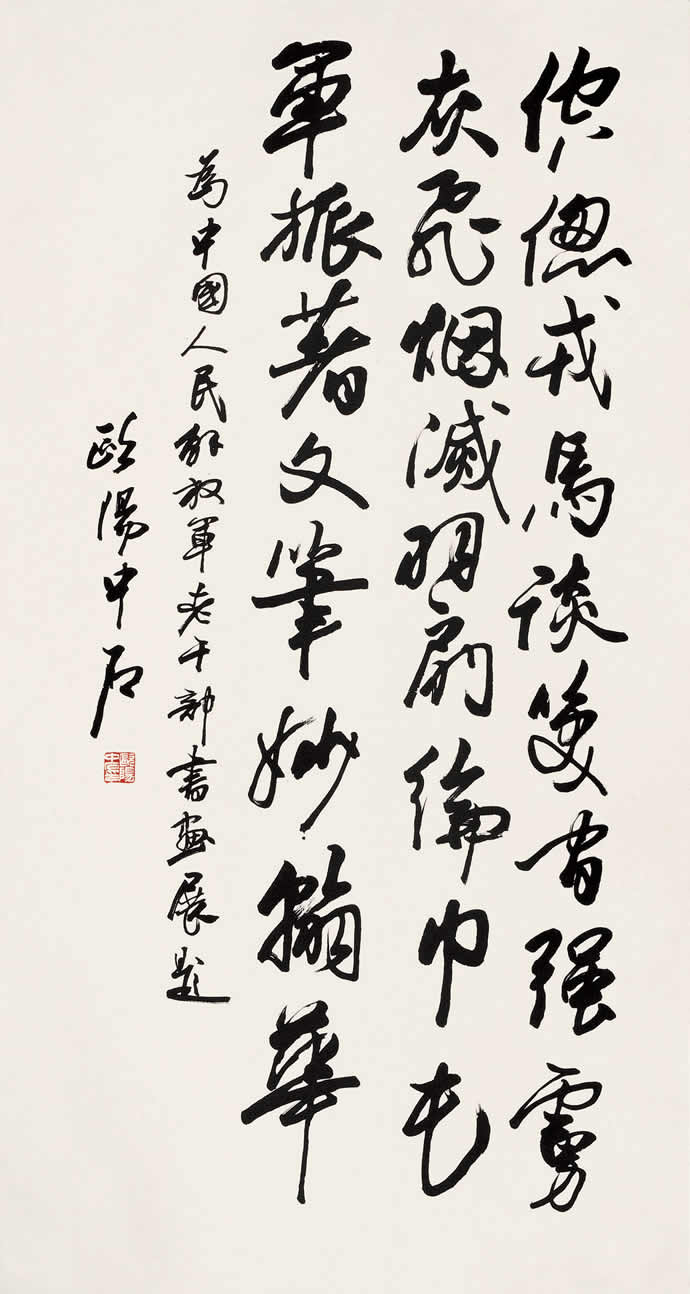 倥傯戎馬談笑强虜
灰飛烟滅羽扇綸巾
軍振著文筆妙翰華
為中國人民解放軍老干部書畫展題
歐陽中石